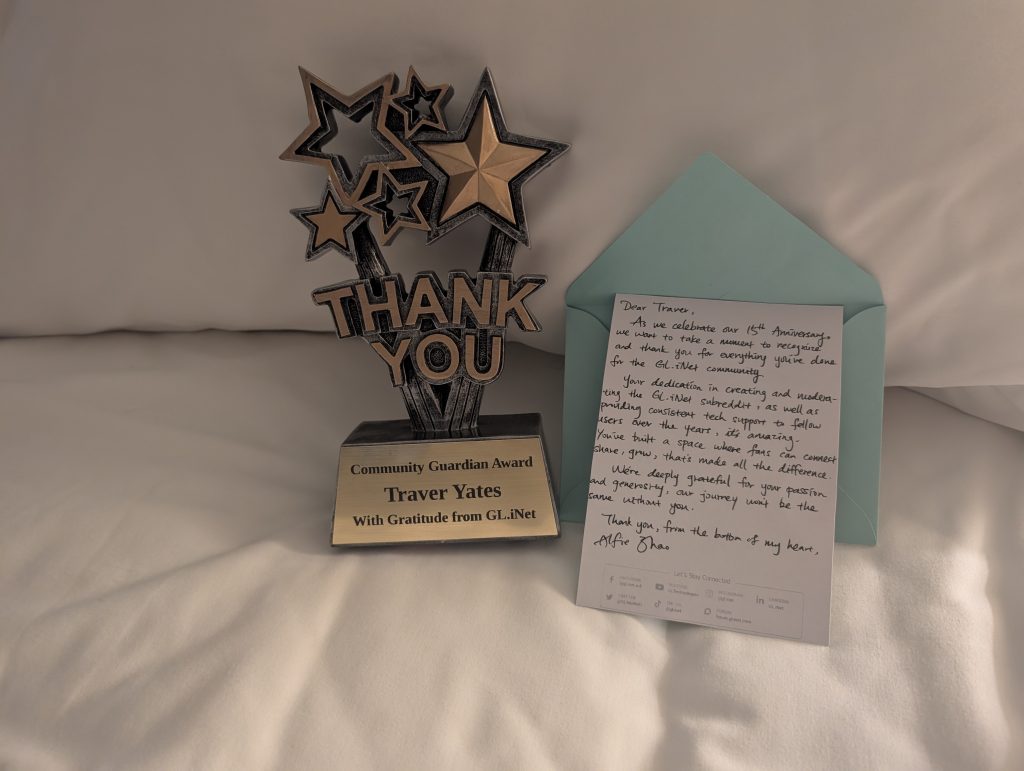 THANK
YOU
Community Guardian Award
Traver Yates
With Gratitude from GL.iNet
Dear Traver,
As we celebrate our 15th Anniversary,
we want to take a moment to recognize
and thank you for everything you've done
for the GL.iNet community
Your dedication in creating and modera-
ting the GL.iNet subreddit, as well as
providing consistent tech support to fellow
users over the years, it's amazing.
You've built a space where fans can connect
share, grow, that's make all the difference.
We're deeply grateful for your passion
and generosity, our journey won't be the
same without you.
Thank you, from the bottom of my heart,
Alfie Zhao
Let's Stay Connected